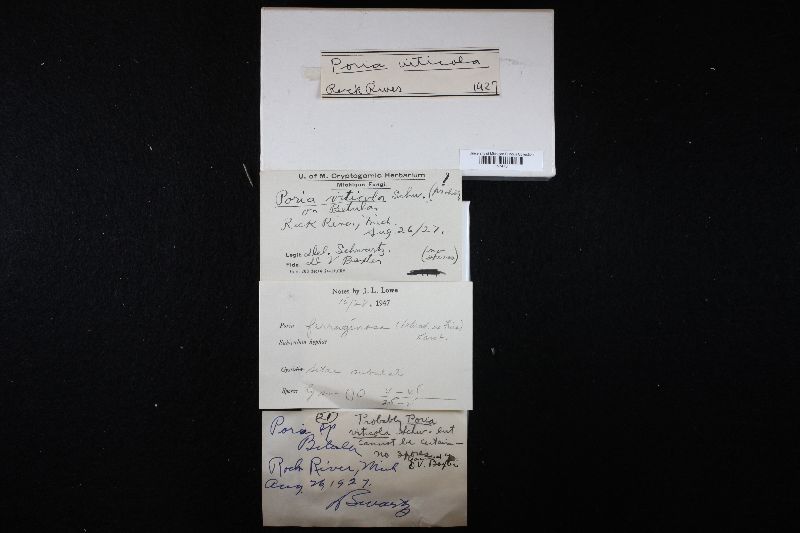 Poria viticola
Rock River 1927
University of Michigan Fungus Collection
U. of M. Cryptogamic Herbarium
Michigan Fungi
Poria viticola Schw. (probably)
on Betula
Rock River, Mich.
Aug. 26/27.
Legit Del. Schwartz.
Fide D V Baxter (no spores)
Notes by J. L. Lowe
1947
Poria ferruginosa
Karst.
Subiculum hyphae
Cystidia setae subulate
Spores
Poria sp Probably Poria
viticola Schw. but
Betula cannot be certain—
no spores
Rock River, Mich D.V. Baxter
Aug 26, 1927.